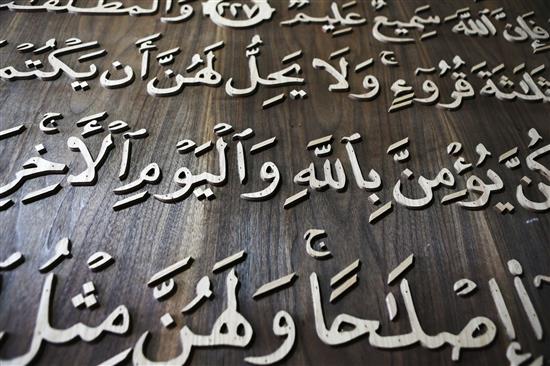 فَإِنَّ اللَّهَ سَمِيعٌ عَلِيمٌ ٢٢٧ وَالْمُطَلَّقَ
ثَلَٰثَةَ قُرُوٓءٍ ۚ وَلَا يَحِلُّ لَهُنَّ أَن يَكْتُمْ
كُنَّ يُؤْمِنَّ بِاللَّهِ وَالْيَوْمِ الْأَخِرِ ۚ
إِصْلَٰحًا ۚ وَلَهُنَّ مِثْلُ